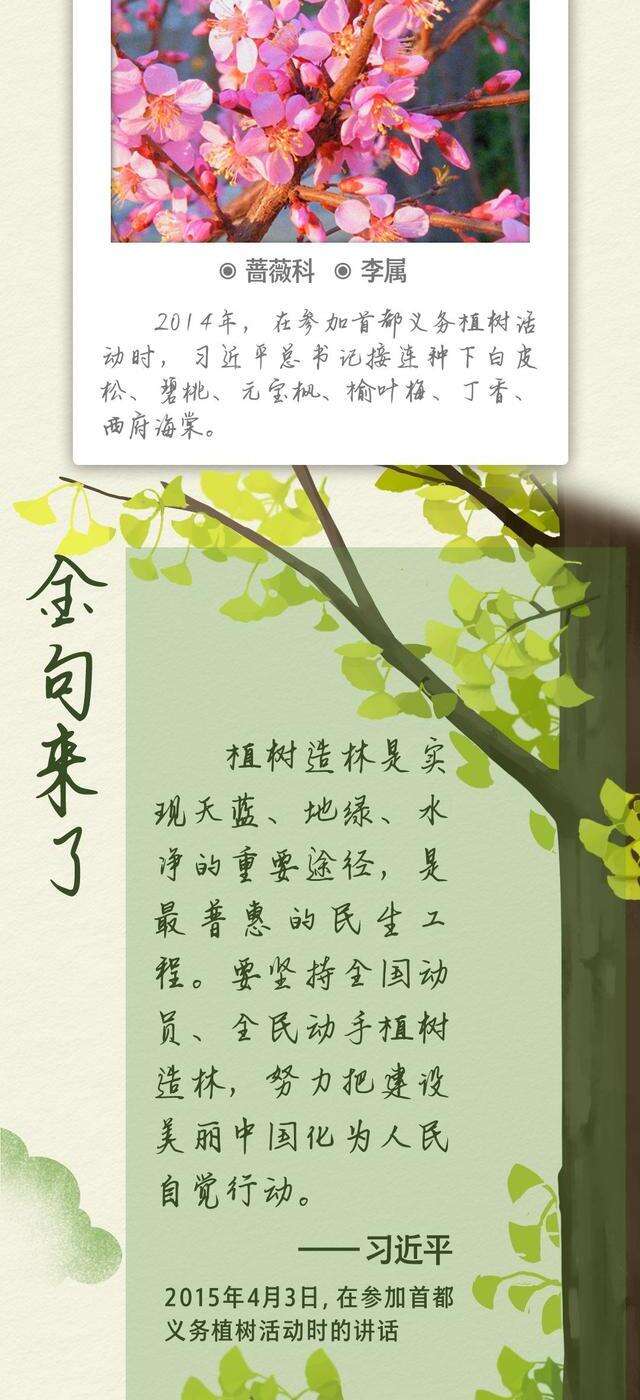 ◉ 蔷薇科 ◉ 李属
2014年，在参加首都义务植树活
动时，习近平总书记接连种下白皮
松、碧桃、元宝枫、榆叶梅、丁香、
西府海棠。
金句来了
植树造林是实
现天蓝、地绿、水
净的重要途径，是
最普惠的民生工
程。要坚持全国动
员、全民动手植树
造林，努力把建设
美丽中国化为人民
自觉行动。
——习近平
2015年4月3日，在参加首都
义务植树活动时的讲话